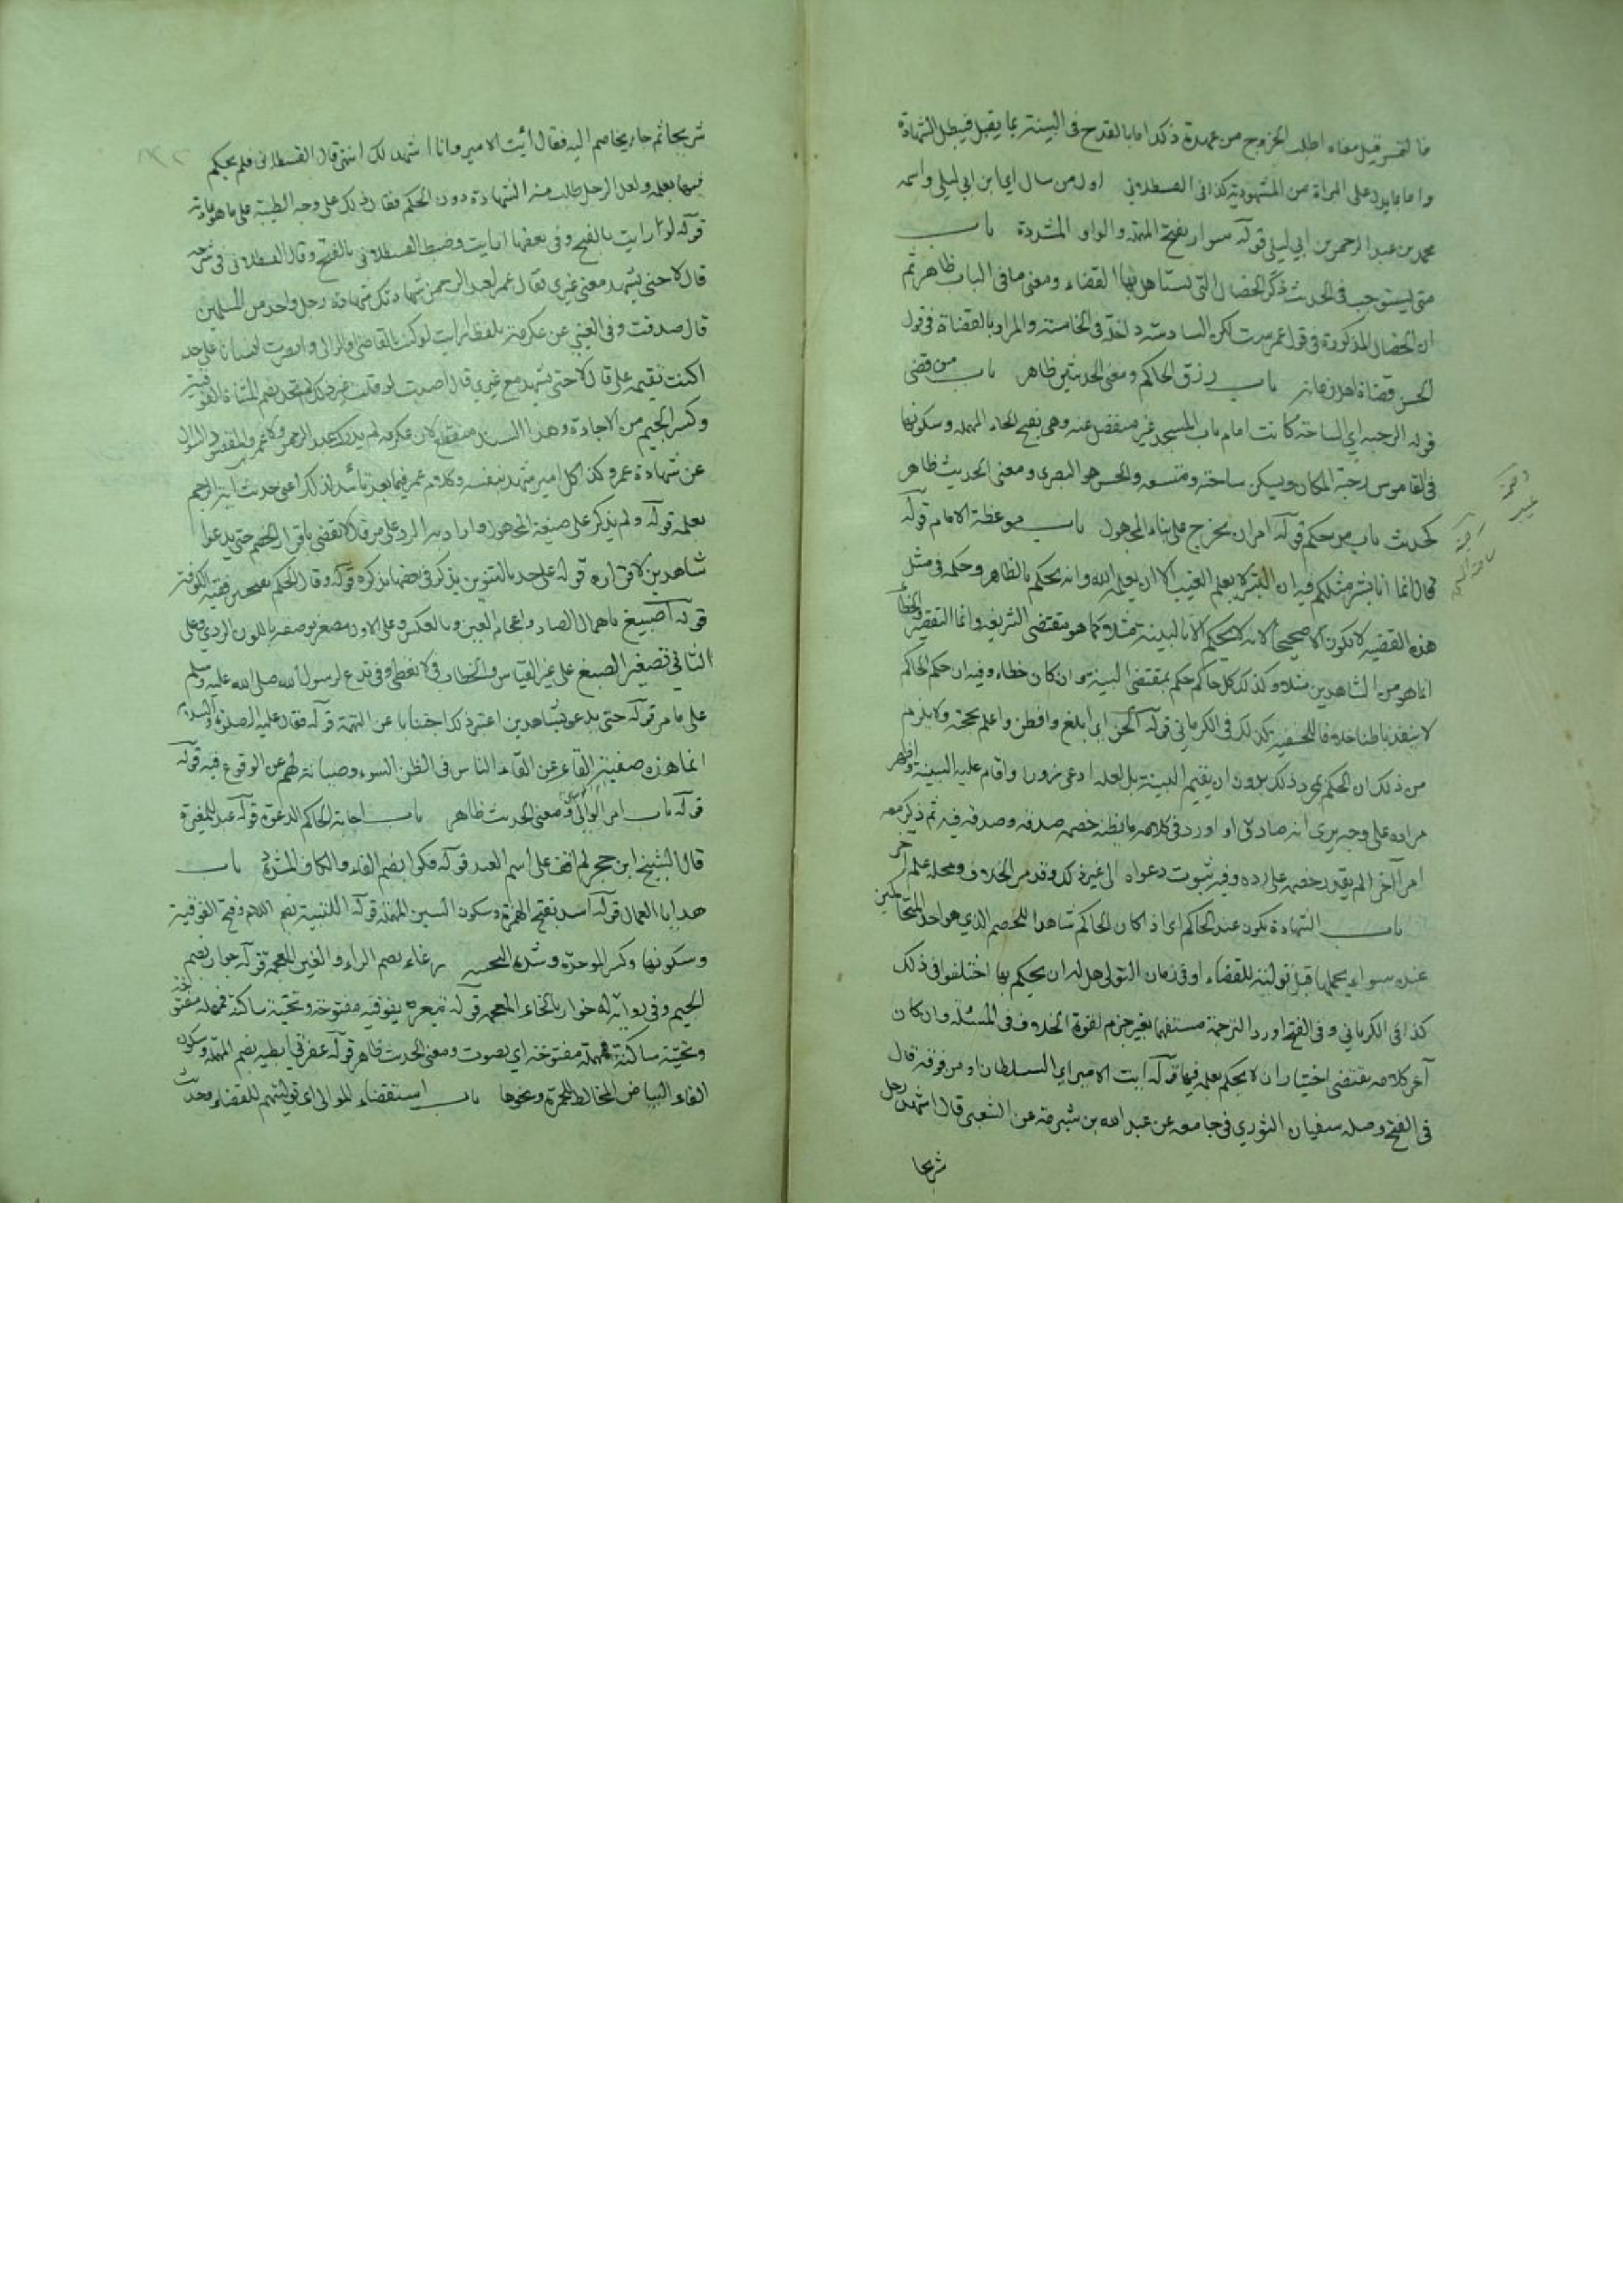 فالتمس قيل معناه اطلب الخروج من عهدة ذلك اما بالقدح في البينة بما يقبل فيبطل الشهادة
واما بما يدل على البراة من المشهود به كذا في القسطلاني اول من سال اي ابن ابي ليلى واسمه
محمد بن عبد الرحمن بن ابي ليلى قوله سوار بفتح المهملة والواو المشددة باب
متى يستوجب في الحديث ذكر الخصال التي يستاهل بها القضاء ومعنى ما في الباب ظاهر ثم
ان الخصال المذكورة في قول عمر ست لكن السادسة داخلة في الخامسة والمراد بالقضاة في قول
الحسن قضاة اهل زمانه باب رزق الحاكم ومعنى الحديثين ظاهر باب من قضى
قوله الرحبة اي الساحة كانت امام باب المسجد غير منفصل عنه وهي بفتح الحاء المهملة وسكونها
في القاموس رحبة المكان ويسكن ساحته ومتسعه والحسن هو البصري ومعنى الحديث ظاهر
كحديث باب من حكم قوله امر ان يخرج على بناء المجهول باب موعظة الامام قوله
قال انما انا بشر مثلكم فيه ان البشر لا يعلم الغيب الا ان يعلمه الله وانه يحكم بالظاهر وحكمه في مثل
هذه القضية لا تكون الا صحيحا لانه لا يحكم الا بالبينة مثلا كما هو مقتضى الشريعة وانما التقصير والخطأ
انما هو من الشاهدين مثلا وكذلك كل حاكم حكم بمقتضى البينة وان كان خطاء وفيه ان حكم الحاكم
لا ينفذ باطنا خلافا للحنفية كذلك في الكرماني قوله الحن اي ابلغ وافطن واعلم بحجته ولا يلزم
من ذلك ان الحكم بمجرد ذلك بدون ان يقيم البينة بل لعله ادعى زورا واقام عليه البينة واظهر
مراده على وجه يرى انه صادق او اورد في كلامه ما يظنه خصمه صدقه وصدقه فيه ثم ذكر معه
امرا آخر لم يقدر خصمه على رده وفيه ثبوت دعواه الى غير ذلك وقد مر الخلاف ومحله علم آخر
باب الشهادة تكون عند الحاكم اي اذا كان الحاكم شاهدا للخصم الذي هو احد المتحاكمين
عنده سواء يحملها قبل توليته للقضاء او في زمان التولي هل له ان يحكم بها اختلفوا في ذلك
كذا في الكرماني وفي الفتح اورد الترجمة مستفهما بغير جزم لقوة الخلاف في المسئلة وان كان
آخر كلامه يقتضي اختيار ان لا يحكم بعلمه فيها قوله ايت الامير اي السلطان او من فوقه قال
في الفتح وصله سفيان الثوري في جامعه عن عبد الله بن شبرمة عن الشعبي قال اشهد رجل
شريحا
شريحا ثم جاء يخاصم اليه فقال ائت الامير وانا اشهد لك انتهى قال القسطلاني فلم يحكم
فيها بعلمه ولعل الرجل طلب منه الشهادة دون الحكم فقال ذلك على وجه الطيبة على ما هو عادته
قوله لو رايت بالفتح وفي بعضها ارايت وضبط القسطلاني بالفتح وقال القسطلاني في شرحه
قال لا حتى يشهد معي غيري فقال عمر لعبد الرحمن شهادتك شهادة رجل واحد من المسلمين
قال صدقت وفي العيني عن عكرمة بلفظ ارايت لو كنت القاضي او الوالي وابصرت انسانا على حد
اكنت تقيمه على قال لا حتى يشهد مع غيري قال اصبت لو قلت غير ذلك لم تجد بضم المثناة الفوقية
وكسر الجيم من الاجادة وهذا السند منقطع لان عكرمة لم يدرك عبد الرحمن ولا عمر
عن شهادة عمر وكذا كل امير شهد بنفسه وكلام عمر فيما بعد تأئيد لذلك اعني حديث آية الرجم
بعلمه قوله ولم يذكر على صيغة المجهول واراد به الرد على من قال لا تقضى باقرار الخصم حتى يدعوا
شاهدين لاقراره قوله على حد بالتنوين يذكر في بعضها بذكره قوله وقال الحكم بفتحتين فقيه الكوفة
قوله اصيبغ باهمال الصاد واعجام الغين وبالعكس وعلى الاول مصغر توصفه باللون الردي وعلى
الثاني تصغير الضبع على غير القياس والخطاب في لا تعطي وفي تدع لرسول الله صلى الله عليه وسلم
على ما مر قوله حتى يدعو بشاهدين اعتبر ذلك اجتنابا عن التهمة قوله فقال عليه الصلوة والسلام
انما هذه صفية القاء عن القاء الناس في الظن السوء وصيانة لهم عن الوقوع فيه قوله
قوله باب امر الوالي ومعنى الحديث ظاهر باب اجابة الحاكم الدعوة قوله عبد للمغيرة
قال الشيخ ابن حجر لم اقف على اسم العبد قوله فكوا بضم الفاء والكاف المشددة باب
هدايا العمال قوله اسد بفتح الهمزة وسكون السين المهملة قوله اللتبية بضم اللام وفتح الفوقية
وسكونها وكسر الموحدة وشدة التحتية رغاء بضم الراء والغين المعجمة قوله جوار بضم
الجيم وفي رواية له خوار بالخاء المعجمة قوله تيعر بفوقية مفتوحة وتحتية ساكنة فمهملة مفتوحة
وتحتية ساكنة فمهملة مفتوحة اي يصوت ومعنى الحديث ظاهر قوله عفرتي ابطيه بضم المهملة وسكون
الفاء البياض المخالط للحمرة ونحوها باب استقضاء الموالي اي توليتهم للقضاء وحديث